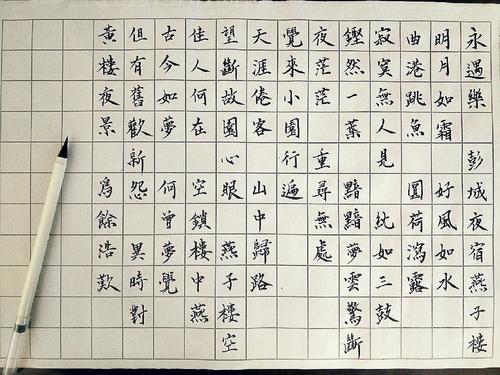 永遇樂 彭城夜宿燕子樓
明月如霜 好風如水
曲港跳魚 圓荷瀉露
寂寞無人見 紞如三鼓
鏗然一葉 黯黯夢雲驚斷
夜茫茫 重尋無處
覺來小園行遍
天涯倦客 山中歸路
望斷故園心眼 燕子樓空
佳人何在 空鎖樓中燕
古今如夢 何曾夢覺
但有舊歡新怨 異時對
黃樓夜景 爲餘浩歎